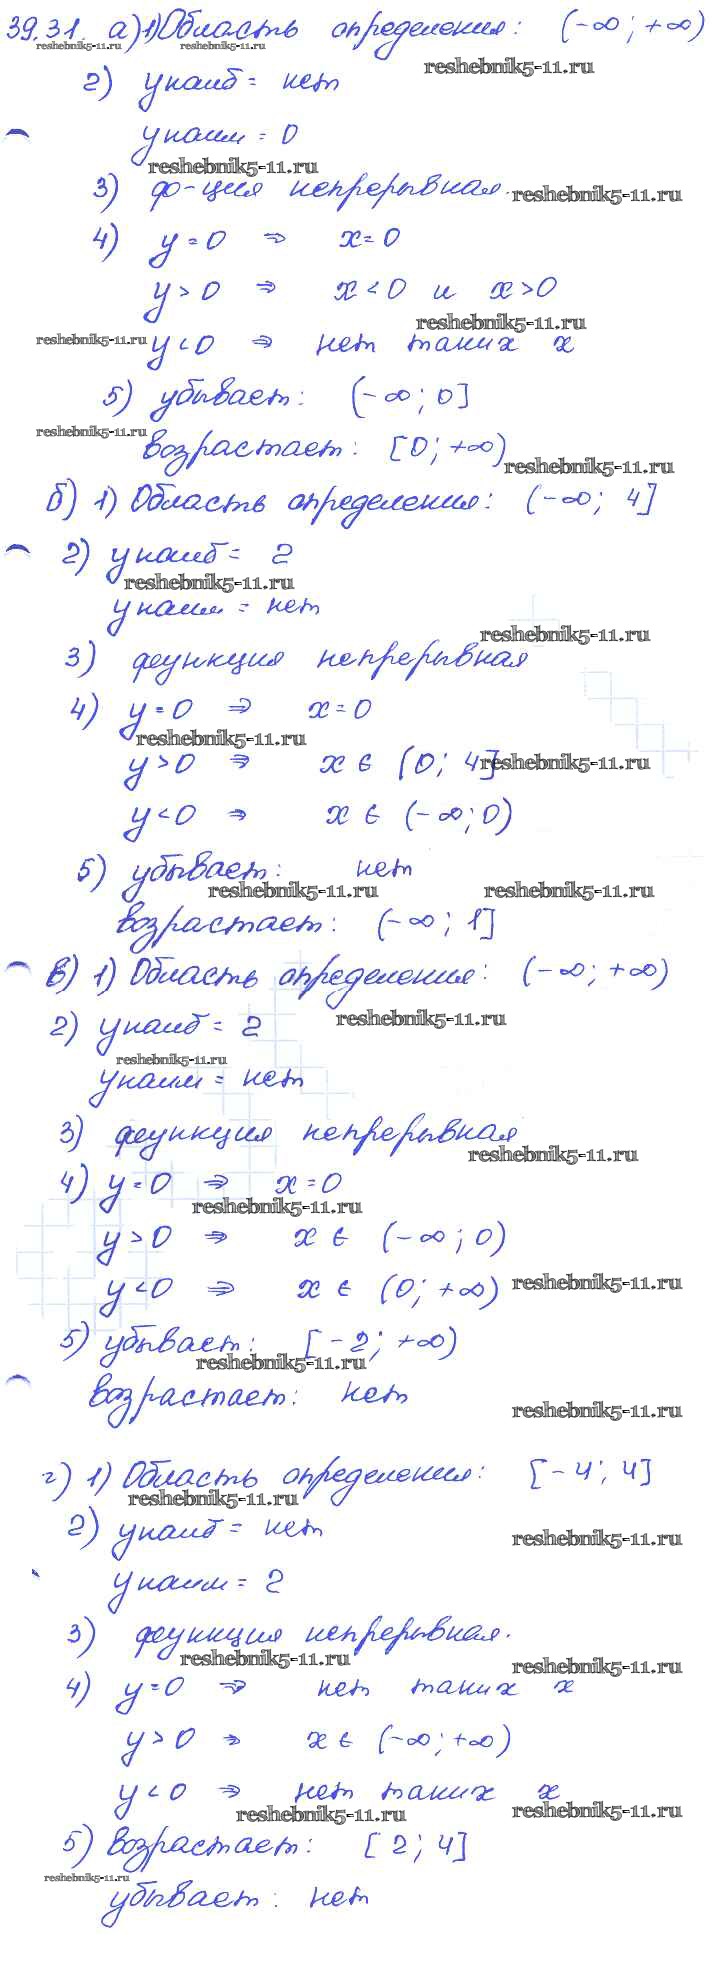 39.31. а) 1) Область определения: (-∞; +∞)
reshebnik5-11.ru reshebnik5-11.ru
reshebnik5-11.ru
2) yнаиб = нет
yнаим = 0
reshebnik5-11.ru
3) ф-ция непрерывная.
reshebnik5-11.ru
4) y = 0 ⇒ x = 0
y > 0 ⇒ x < 0 и x > 0
reshebnik5-11.ru
reshebnik5-11.ru
y < 0 ⇒ нет таких x
5) убывает: (-∞; 0]
reshebnik5-11.ru
возрастает: [0; +∞)
reshebnik5-11.ru
б) 1) Область определения: (-∞; 4]
2) yнаиб = 2
reshebnik5-11.ru
yнаим = нет
reshebnik5-11.ru
3) функция непрерывная
4) y = 0 ⇒ x = 0
reshebnik5-11.ru
y > 0 ⇒ x ∈ (0; 4]
reshebnik5-11.ru
y < 0 ⇒ x ∈ (-∞; 0)
5) убывает: нет
reshebnik5-11.ru reshebnik5-11.ru
возрастает: (-∞; 1]
в) 1) Область определения: (-∞; +∞)
2) yнаиб = 2
reshebnik5-11.ru
reshebnik5-11.ru
yнаим = нет
3) функция непрерывная
reshebnik5-11.ru
4) y = 0 ⇒ x = 0
reshebnik5-11.ru
y > 0 ⇒ x ∈ (-∞; 0)
y < 0 ⇒ x ∈ (0; +∞)
reshebnik5-11.ru
5) убывает: [-2; +∞)
reshebnik5-11.ru
возрастает: нет
reshebnik5-11.ru
г) 1) Область определения: [-4; 4]
reshebnik5-11.ru
2) yнаиб = нет
reshebnik5-11.ru
yнаим = 2
3) функция непрерывная.
reshebnik5-11.ru
reshebnik5-11.ru
4) y = 0 ⇒ нет таких x
y > 0 ⇒ x ∈ (-∞; +∞)
y < 0 ⇒ нет таких x
reshebnik5-11.ru reshebnik5-11.ru
5) возрастает: [2; 4]
reshebnik5-11.ru
убывает: нет